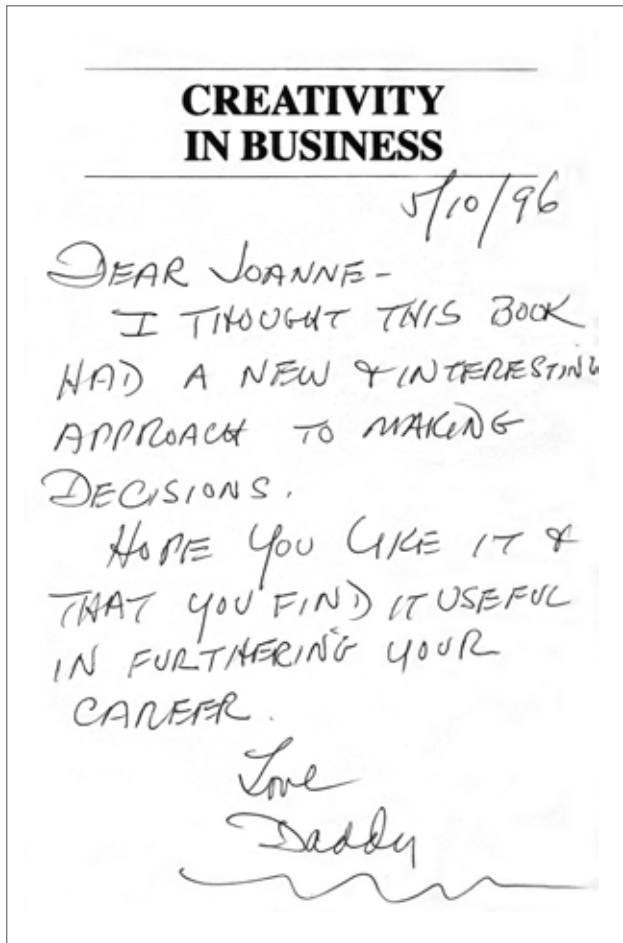 CREATIVITY
IN BUSINESS
5/10/96
DEAR JOANNE-
I THOUGHT THIS BOOK
HAD A NEW & INTERESTING
APPROACH TO MAKING
DECISIONS.
HOPE YOU LIKE IT &
THAT YOU FIND IT USEFUL
IN FURTHERING YOUR
CAREER.
Love
Daddy